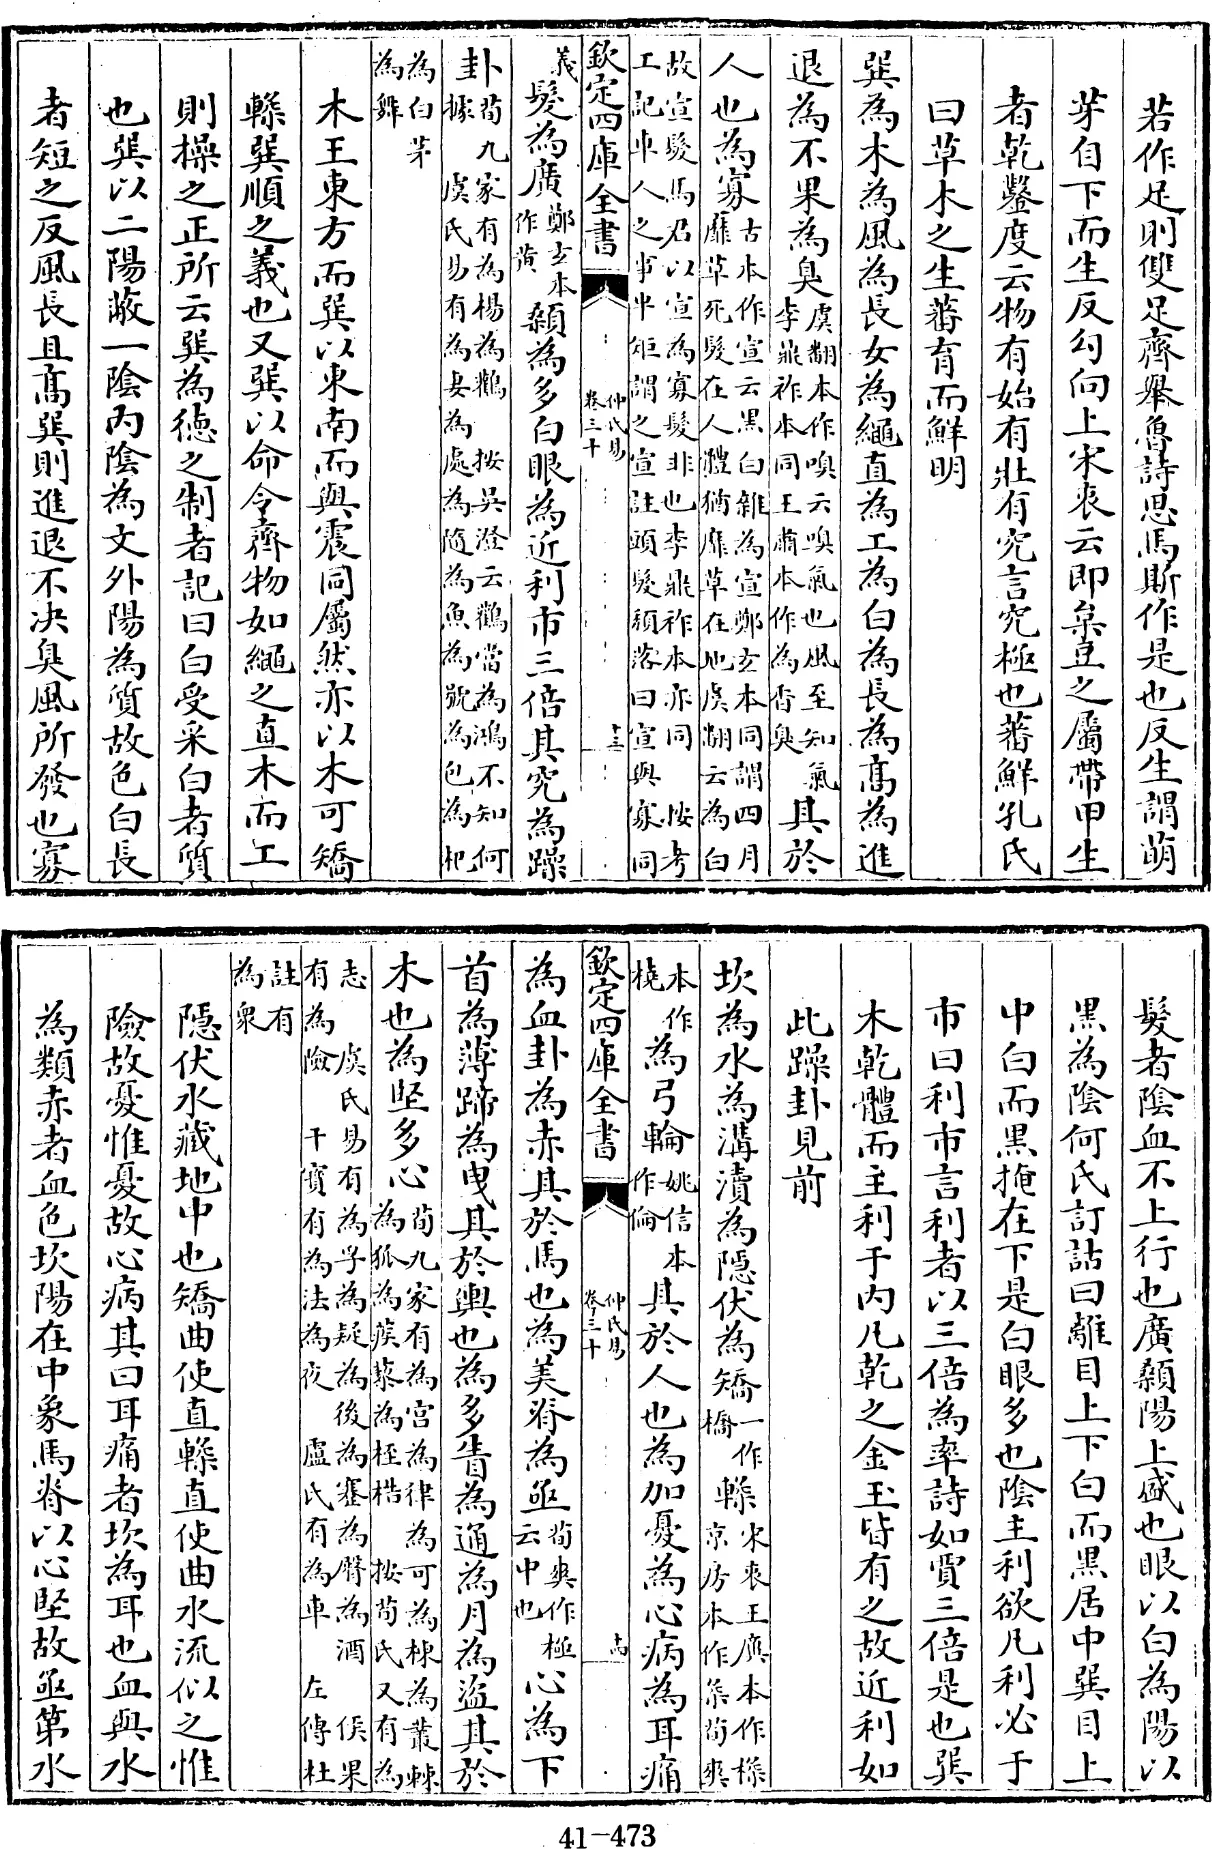 若作足則雙足齊舉魯詩思馬斯作是也反生謂萌
芽自下而生反勾向上宋衷云即枲豆之屬帶甲生
者乾鑿度云物有始有壯有究言究極也蕃鮮孔氏
曰草木之生蕃育而鮮明
巽為木為風為長女為繩直為工為白為長為高為進
退為不果為臭虞翻本作嗅云嗅氣也風至知氣李鼎祚本同王肅本作為香臭其於
人也為寡古本作宣云黑白雜為宣鄭玄本同謂四月靡草死髮在人體猶靡草在地虞翻云為白
故宣髮馬君以宣為寡髮非也李鼎祚本亦同 按考工記車人之事半矩謂之宣註頭髮顏落曰宣與寡同
欽定四庫全書 仲氏易卷三十 十三
義髮為廣鄭玄本作黃顙為多白眼為近利市三倍其究為躁
卦荀九家有為楊為鸛 按吳澄云鸛當為鴻不知何據 虞氏易有為妻為處為隨為魚為號為包為杞
為白茅為舞
木王東方而巽以東南而與震同屬然亦以木可矯
輮巽順之義也又巽以命令齊物如繩之直木而工
則操之正所云巽為德之制者記曰白受采白者質
也巽以二陽蔽一陰內陰為文外陽為質故色白長
者短之反風長且高巽則進退不決臭風所發也寡
髮者陰血不上行也廣顙陽上盛也眼以白為陽以
黑為陰何氏訂詁曰離目上下白而黑居中巽目上
中白而黑掩在下是白眼多也陰主利欲凡利必于
市曰利市言利者以三倍為率詩如賈三倍是也巽
木乾體而主利于內凡乾之金玉皆有之故近利如
此躁卦見前
坎為水為溝瀆為隱伏為矯一作橋輮宋衷王廙本作揉京房本作柔荀爽
本作橈為弓輪姚信本作倫其於人也為加憂為心病為耳痛
欽定四庫全書 仲氏易卷三十 十四
為血卦為赤其於馬也為美脊為亟荀爽作極云中也心為下
首為薄蹄為曳其於輿也為多眚為通為月為盜其於
木也為堅多心荀九家有為宮為律為可為棟為叢棘為狐為蒺藜為桎梏 按荀氏又有為
志 虞氏易有為孚為疑為後為蹇為臀為酒 侯果有為險 干寶有為法為夜 盧氏有為車 左傳杜
註有為衆
隱伏水藏地中也矯曲使直輮直使曲水流似之惟
險故憂惟憂故心病其曰耳痛者坎為耳也血與水
為類赤者血色坎陽在中象馬脊以心堅故亟第水
41-473